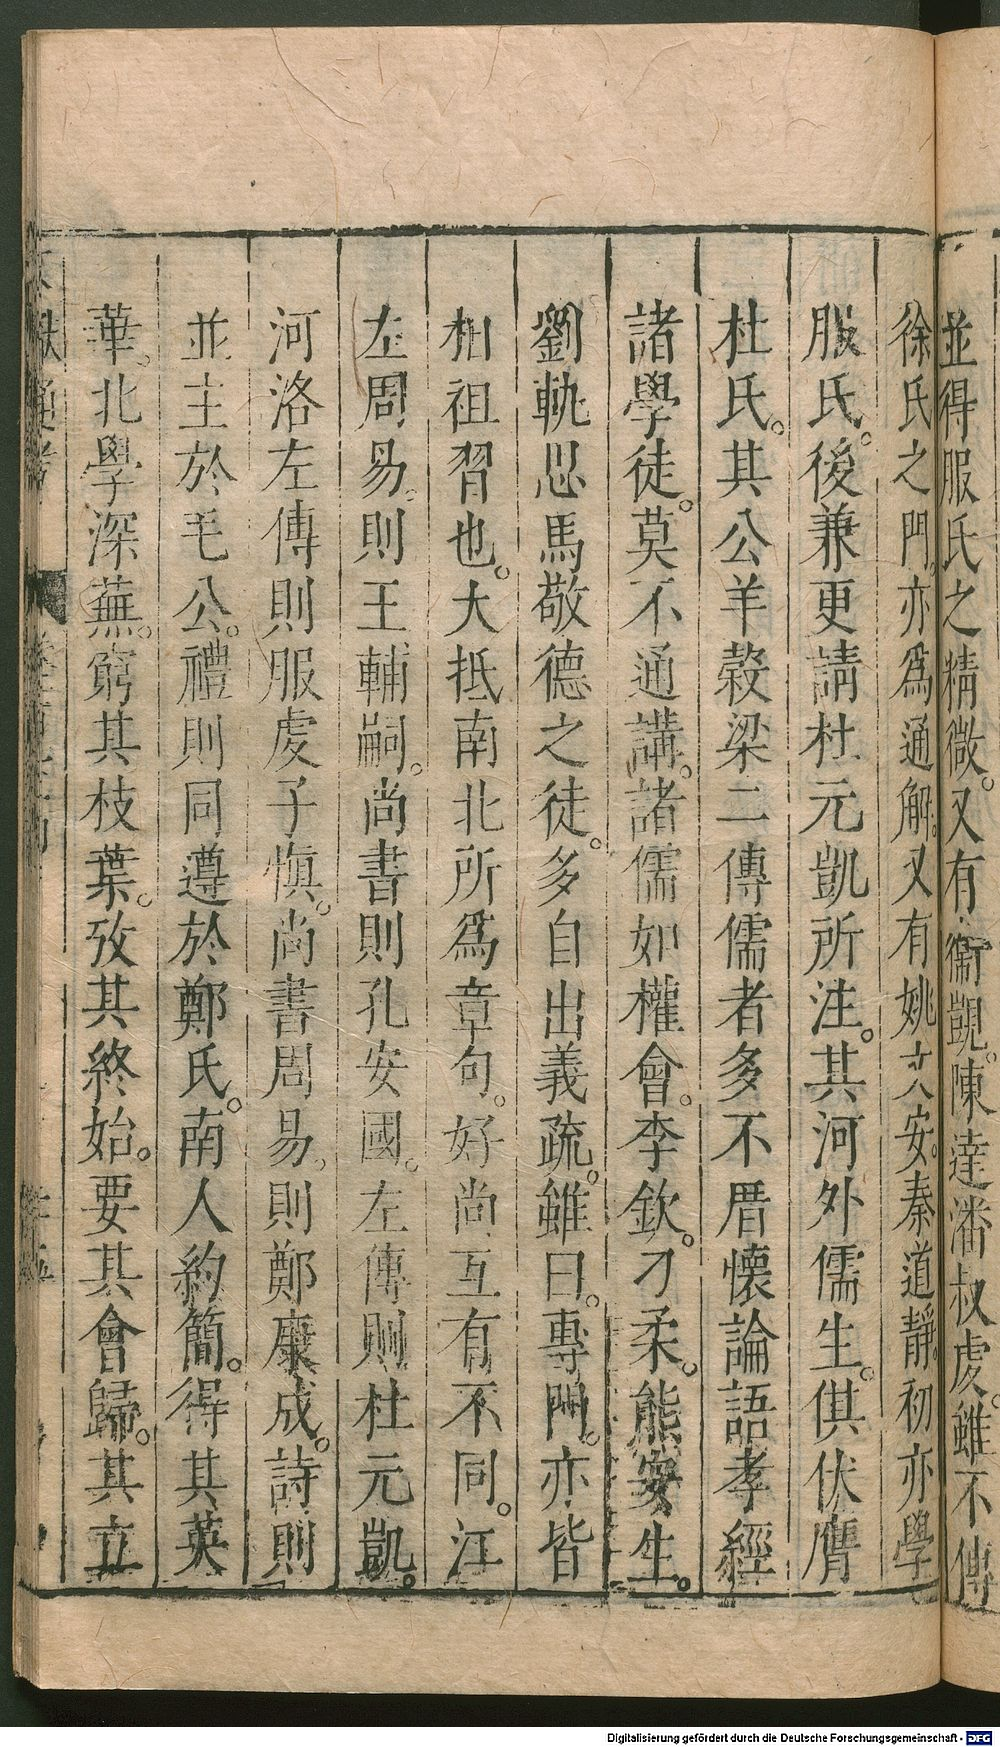 並得服氏之精微。又有衞覬。陳達潘叔虔。雖不傳
徐氏之門。亦爲通解。又有姚文安。秦道靜。初亦學
服氏。後兼更請杜元凱所注。其河外儒生。俱伏膺
杜氏。其公羊穀梁二傳儒者多不厝懷論語孝經
諸學徒。莫不通講。諸儒如權會。李欽。刁柔。熊安生。
劉軌思馬敬德之徒。多自出義疏。雖曰。專門。亦皆
相祖習也。大抵南北所爲章句。好尚互有不同。江
左周易。則王輔嗣。尚書則孔安國。左傳則杜元凱。
河洛左傳則服虔子愼。尚書周易。則鄭康成。詩則
並主於毛公。禮則同遵於鄭氏。南人約簡。得其英
華。北學深蕪。窮其枝葉。攷其終始。要其會歸。其立
Digitalisierung gefördert durch die Deutsche Forschungsgemeinschaft - DFG